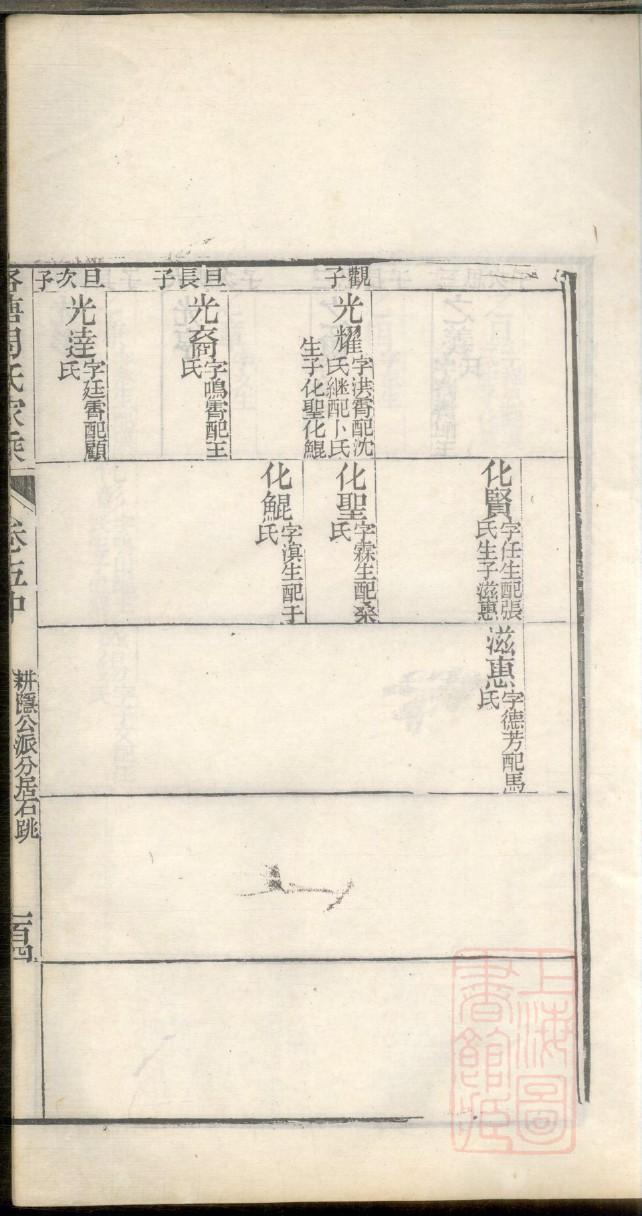 觀子
光耀字洪霄配沈
氏継配卜氏
生子化聖化鯤
旦長子
光裔字鳴霄配王
氏
旦次子
光逵字廷霄配顧
氏
化賢字任生配張
氏生子滋惠
化聖字霖生配桑
氏
化鯤字滇生配于
氏
滋惠字德芳配馬
氏
周氏家乘
卷五中
耕隱公派分居石跳
上海圖
書館